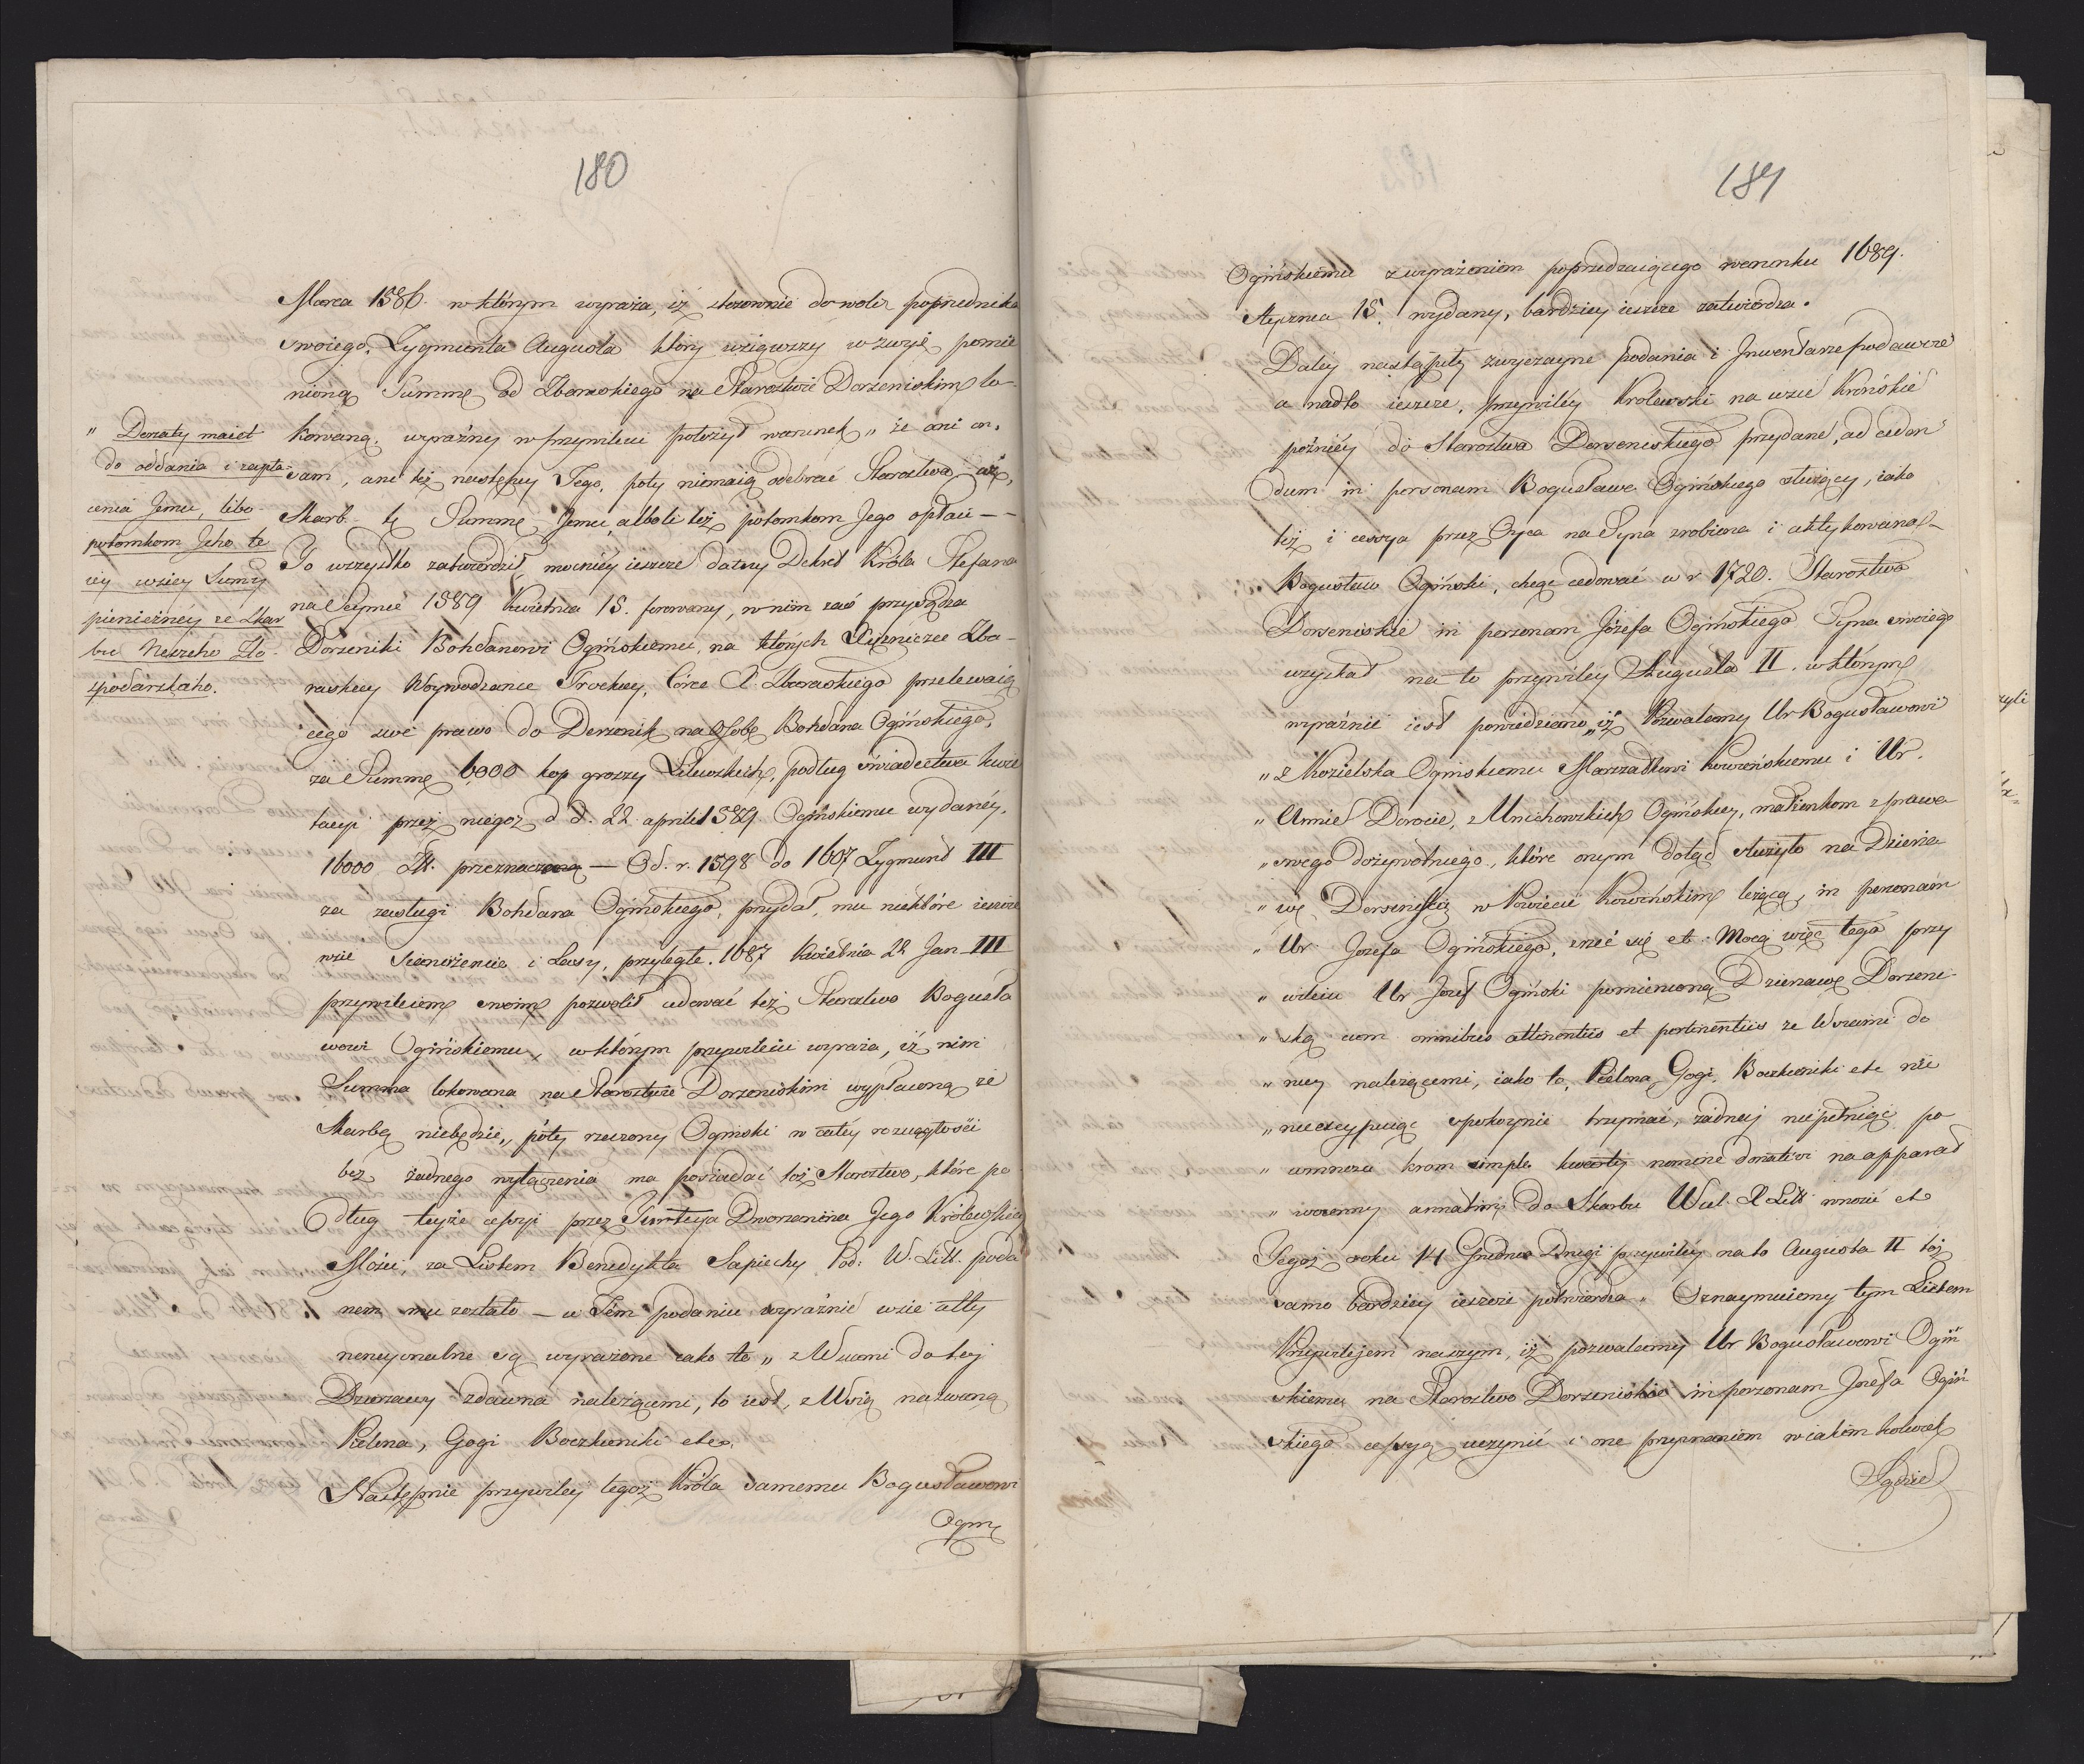 180
Marca 1586. w którym wyraża, iż stosownie do woli poprzednika
swoiego, Zygmunta Augusta który wziąwszy w swyię pomie
nioną Summę od Zbaraskiego na Starostwie Dorsuniskim lo-
kowaną, wyraźny w przywileiu położył warunek „ że ani on,
sam, ani też następcy Jego, poty niemaią odebrać Starostwa, aż,
Skarb tę Summę Jemu, albo li też potomkom Jego opłaci - -
To wszystko zatwierdził, mocniey ieszcze datny Dekret Króla Stefana
na Seymie 1589 Kwietnia 15. ferowany, w nim zaś przysądza
Dorseniki Bohdanowi Ogińskiemu, na których Xiężniczce Zba-
raskiey Woywodzance Trockiey, Córce X. Zbaraskiego przelewaią
cego swe prawo do Dersenik na Osobę Bohdana Ogińskiego,
za Summę 6000 kop groszy Litewskich, podług świadectwa kwie
tacyi przez niegoż d d. 22 aprilis 1589 Ogińskiemu wydanéy,
16000 Zł. przeznaczoną — Od. r. 1598 do 1607 Zygmund III
za zasługi Bohdana Ogińskiego, przydał, mu niektóre ieszcze
wsie Sianożencie i Lasy, przyległe. 1687 Kwietnia 22 Jan III
przywileiem swoim pozwolił cedować też Starostwo Bogusła
wowi Ogińskiemu, w którym przywileiu wyraża, iż nim
Summa lokowana na Starostwie Dorseniskim wypłaconą ze
Skarbu niebędzie, „ póty rzeczony Ogiński w całéy rozciągłości
bez żadnego wyłączenia ma posiadać toż Starostwo, które po
dług teyże cessyi przez Dworzenina Jego Królewskiey
Mości, za Listem Benedykta Sapiechy Pod: W. Litt. poda
nem mu zostało — w Tém podaniu wyraźnie wsie atty
nencyonalne są wyrażone iako to „ z Wsiami do tey
Dzierzawy zdawna należącemi, to iest, z Wsią nazwaną
Pielena, Gogi Boczkieniki etc.
Następnie przywiley tegoż Króla samemu Bogusławowi
Ogiń
„ Derżaty maiet
do oddania i zapła-
cenia Jemu, libo
potomkom Jeho te
iey wsiey Sumy
pienieżnéy ze Skar
bu Naszeho Ho-
spodarskaho.
181
Ogińskiemu z wyrażeniem poprzedzaiącego warunku 1689.
Stycznia 15. wydany, bardziey ieszcze zatwierdza.
Daley nastąpiły zwyczayne podania i Inwentarze podawcze
a nadto ieszcze, przywiléy Królewski na wsie Krońskie
pożniéy do Starostwa Dorseniskiego przydane, ad ceden
dum in personam Bogusława Ogińskiego służący, iako
też i cessya przez Oyca na Syna zrobiona i aktykowana -
Bogusław Ogiński, chcąc cedować w r 1720. Starostwo
Dorseniskie in personam Józefa Ogińskiego Syna swoiego
uzyskał na to przywiley Augusta II. w którym
wyraźnie iest powiedziano, „ iż Pozwalamy Ur Bogusławowi
„ z Kozielska Ogińskiemu Marszałkowi Kowieńskiemu i Ur.
„ Annie Dorocie, z Unichowskich Ogińskiey, małżonkom z prawa
„ swego dożywotniego, które onym dotąd służyło na Dzierża
„ wę Dorseniską w Powiecie Kowieńskim leżącą, in personam
„ Ur Jozefa Ogińskiego, znieć się etc. Mocą więc tego przy
„ wileiu Ur Jozef Ogiński pomienioną Dzierzawę Dorseni-
„ ską cum omnibus attinentiis et pertinentiis ze Wsiami do
„ niey należącemi, iako to, Pielona, Gogi, Boczkieniki etc nic
„ nieexcypuiąc spokoynie trzymać, żadney niepełniąc po
„ winności krom simple kwarty nomine donativi na apparat
„ woienny annatim do Skarbu Wiel. X Litt wnosić etc
Tegoż roku 14 Grudnia Drugi przywiléy na to Augusta II toż
samo bardziey ieszcze potwierdza. Oznaymuiemy tym Listem
Przywilejem naszym, iż pozwalamy Ur Bogusławowi Ogiń
skiemu na Starostwo Dorseniskie in personam Jozefa Ogiń
skiego cessyą uczynić i one przyznaniem w iakim kolwiek
Sądzie